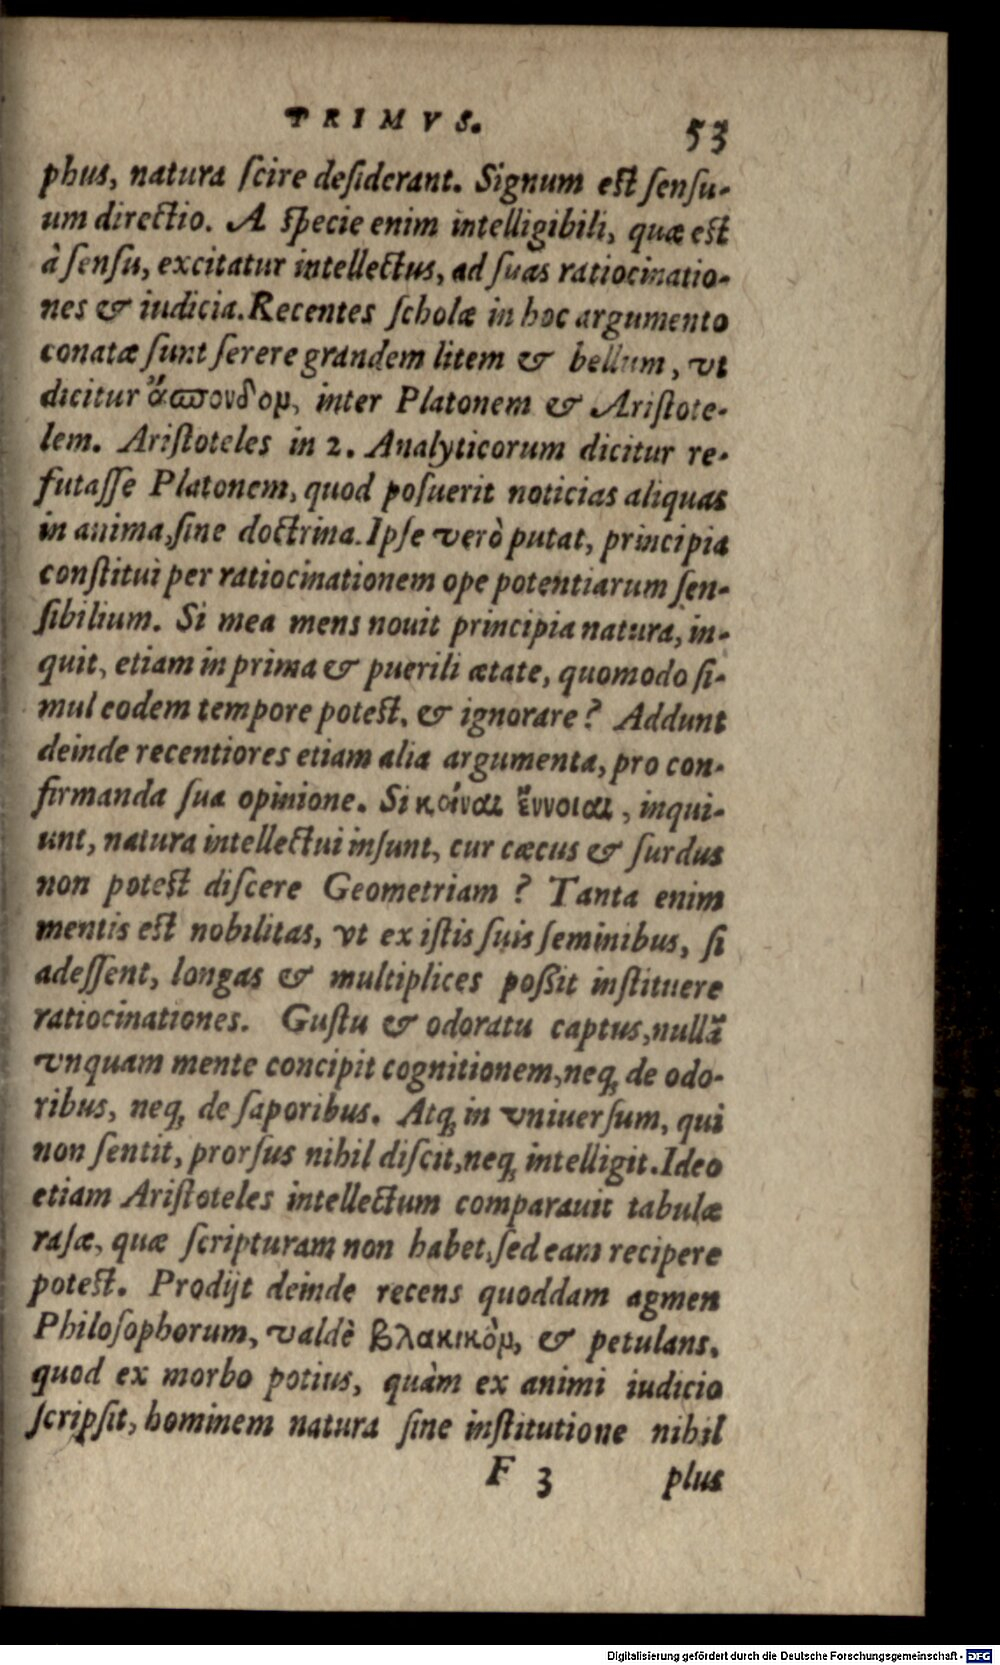 PRIMVS. 53
phus, natura ſcire deſiderant. Signum eſt ſenſu-
um directio. A ſpecie enim intelligibili, quæ eſt
à ſenſu, excitatur intellectus, ad ſuas ratiocinatio-
nes & iudicia. Recentes ſcholæ in hoc argumento
conatæ ſunt ſerere grandem litem & bellum, vt
dicitur ἄσπονδομ, inter Platonem & Ariſtote-
lem. Ariſtoteles in 2. Analyticorum dicitur re-
futaſſe Platonem, quod poſuerit noticias aliquas
in anima, ſine doctrina. Ipſe verò putat, principia
conſtitui per ratiocinationem ope potentiarum ſen-
ſibilium. Si mea mens nouit principia natura, in-
quit, etiam in prima & puerili ætate, quomodo ſi-
mul eodem tempore poteſt, & ignorare? Addunt
deinde recentiores etiam alia argumenta, pro con-
firmanda ſua opinione. Si κοίναι ἔννοιαι, inqui-
unt, natura intellectui inſunt, cur cæcus & ſurdus
non poteſt diſcere Geometriam? Tanta enim
mentis eſt nobilitas, vt ex iſtis ſuis ſeminibus, ſi
adeſſent, longas & multiplices poßit inſtituere
ratiocinationes. Guſtu & odoratu captus, nullā
vnquam mente concipit cognitionem, neq; de odo-
ribus, neq; de ſaporibus. Atq; in vniuerſum, qui
non ſentit, prorſus nihil diſcit, neq; intelligit. Ideo
etiam Ariſtoteles intellectum comparauit tabulæ
raſæ, quæ ſcripturam non habet, ſed eam recipere
poteſt. Prodijt deinde recens quoddam agmen
Philoſophorum, valdè βλακικὸμ, & petulans,
quod ex morbo potius, quàm ex animi iudicio
ſcripſit, hominem natura ſine inſtitutione nihil
F 3 plus
Digitalisierung gefördert durch die Deutsche Forschungsgemeinschaft - DFG